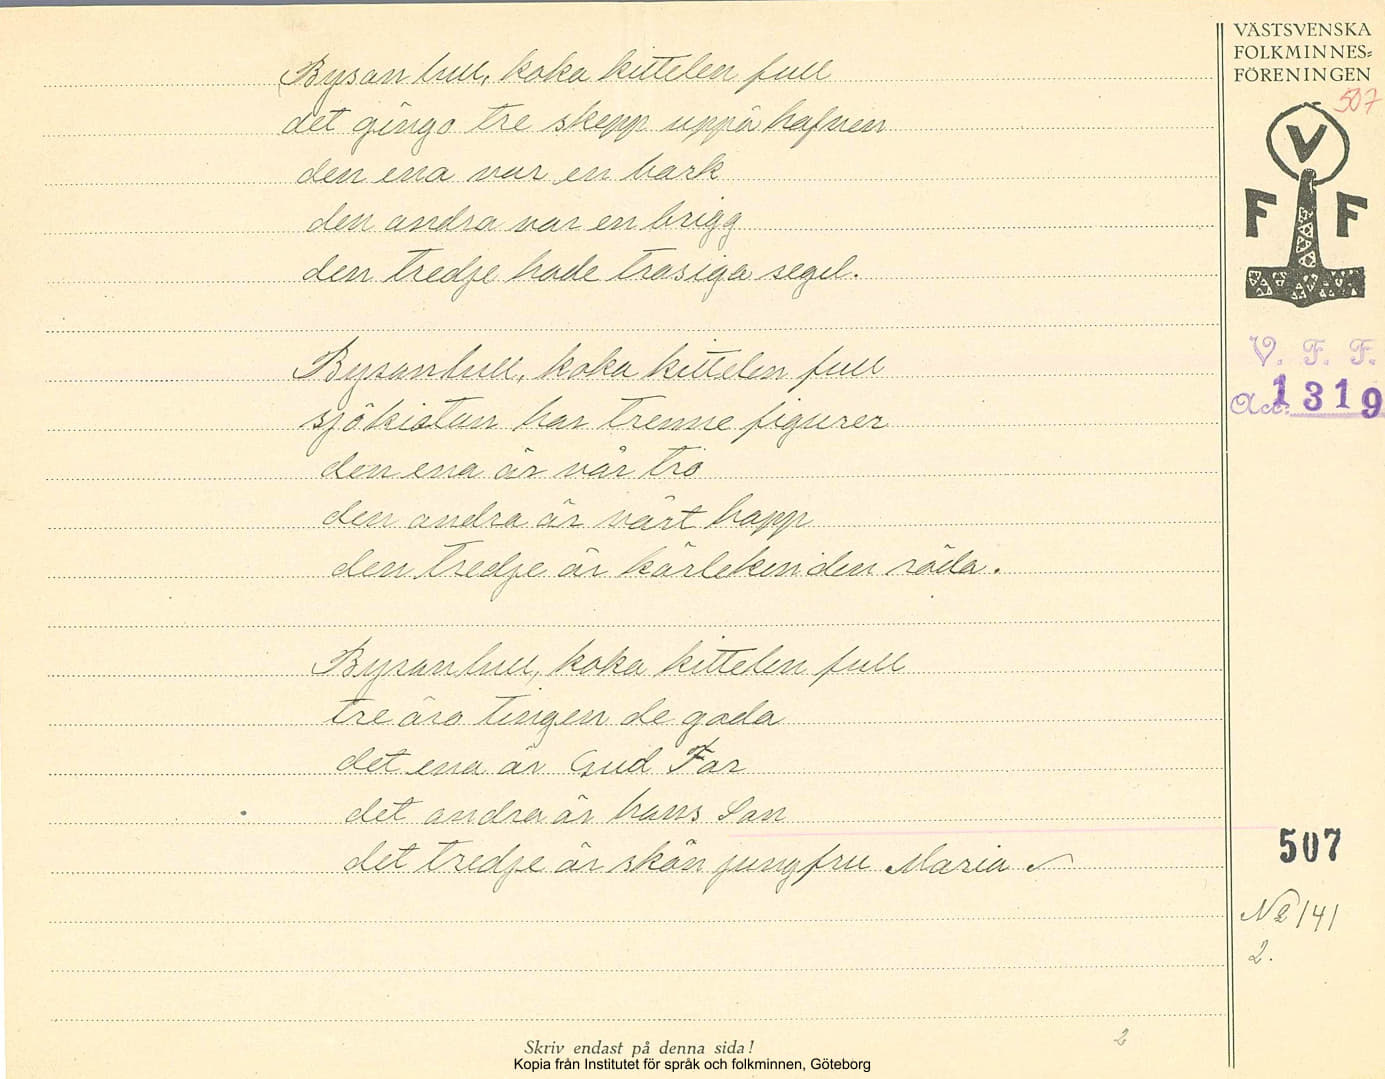 VÄSTSVENSKA
FOLKMINNES=
FÖRENINGEN
507
V
F F
V. F. F.
Acc. 1319
Bysan lull, koka kittelen full
det gingo tre skepp uppå hafven
den ena var en bark
den andra var en brigg
den tredje hade trasiga segel.
Bysanlull, koka kittelen full
sjökistan har trenne figurer
den ena är vår tro
den andra är vårt hopp
den tredje är kärleken den röda.
Bysanlull, koka kittelen full
tre äro tingen de goda
det ena är Gud Far
det andra är hans Son
det tredje är skön jungfru Maria
507
N2/41
2.
2
Skriv endast på denna sida!
Kopia från Institutet för språk och folkminnen, Göteborg